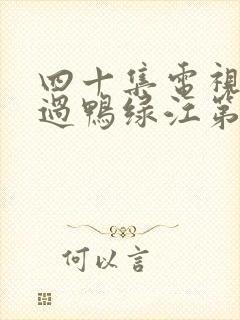 四十集電視
過鴨绿江第
何以言